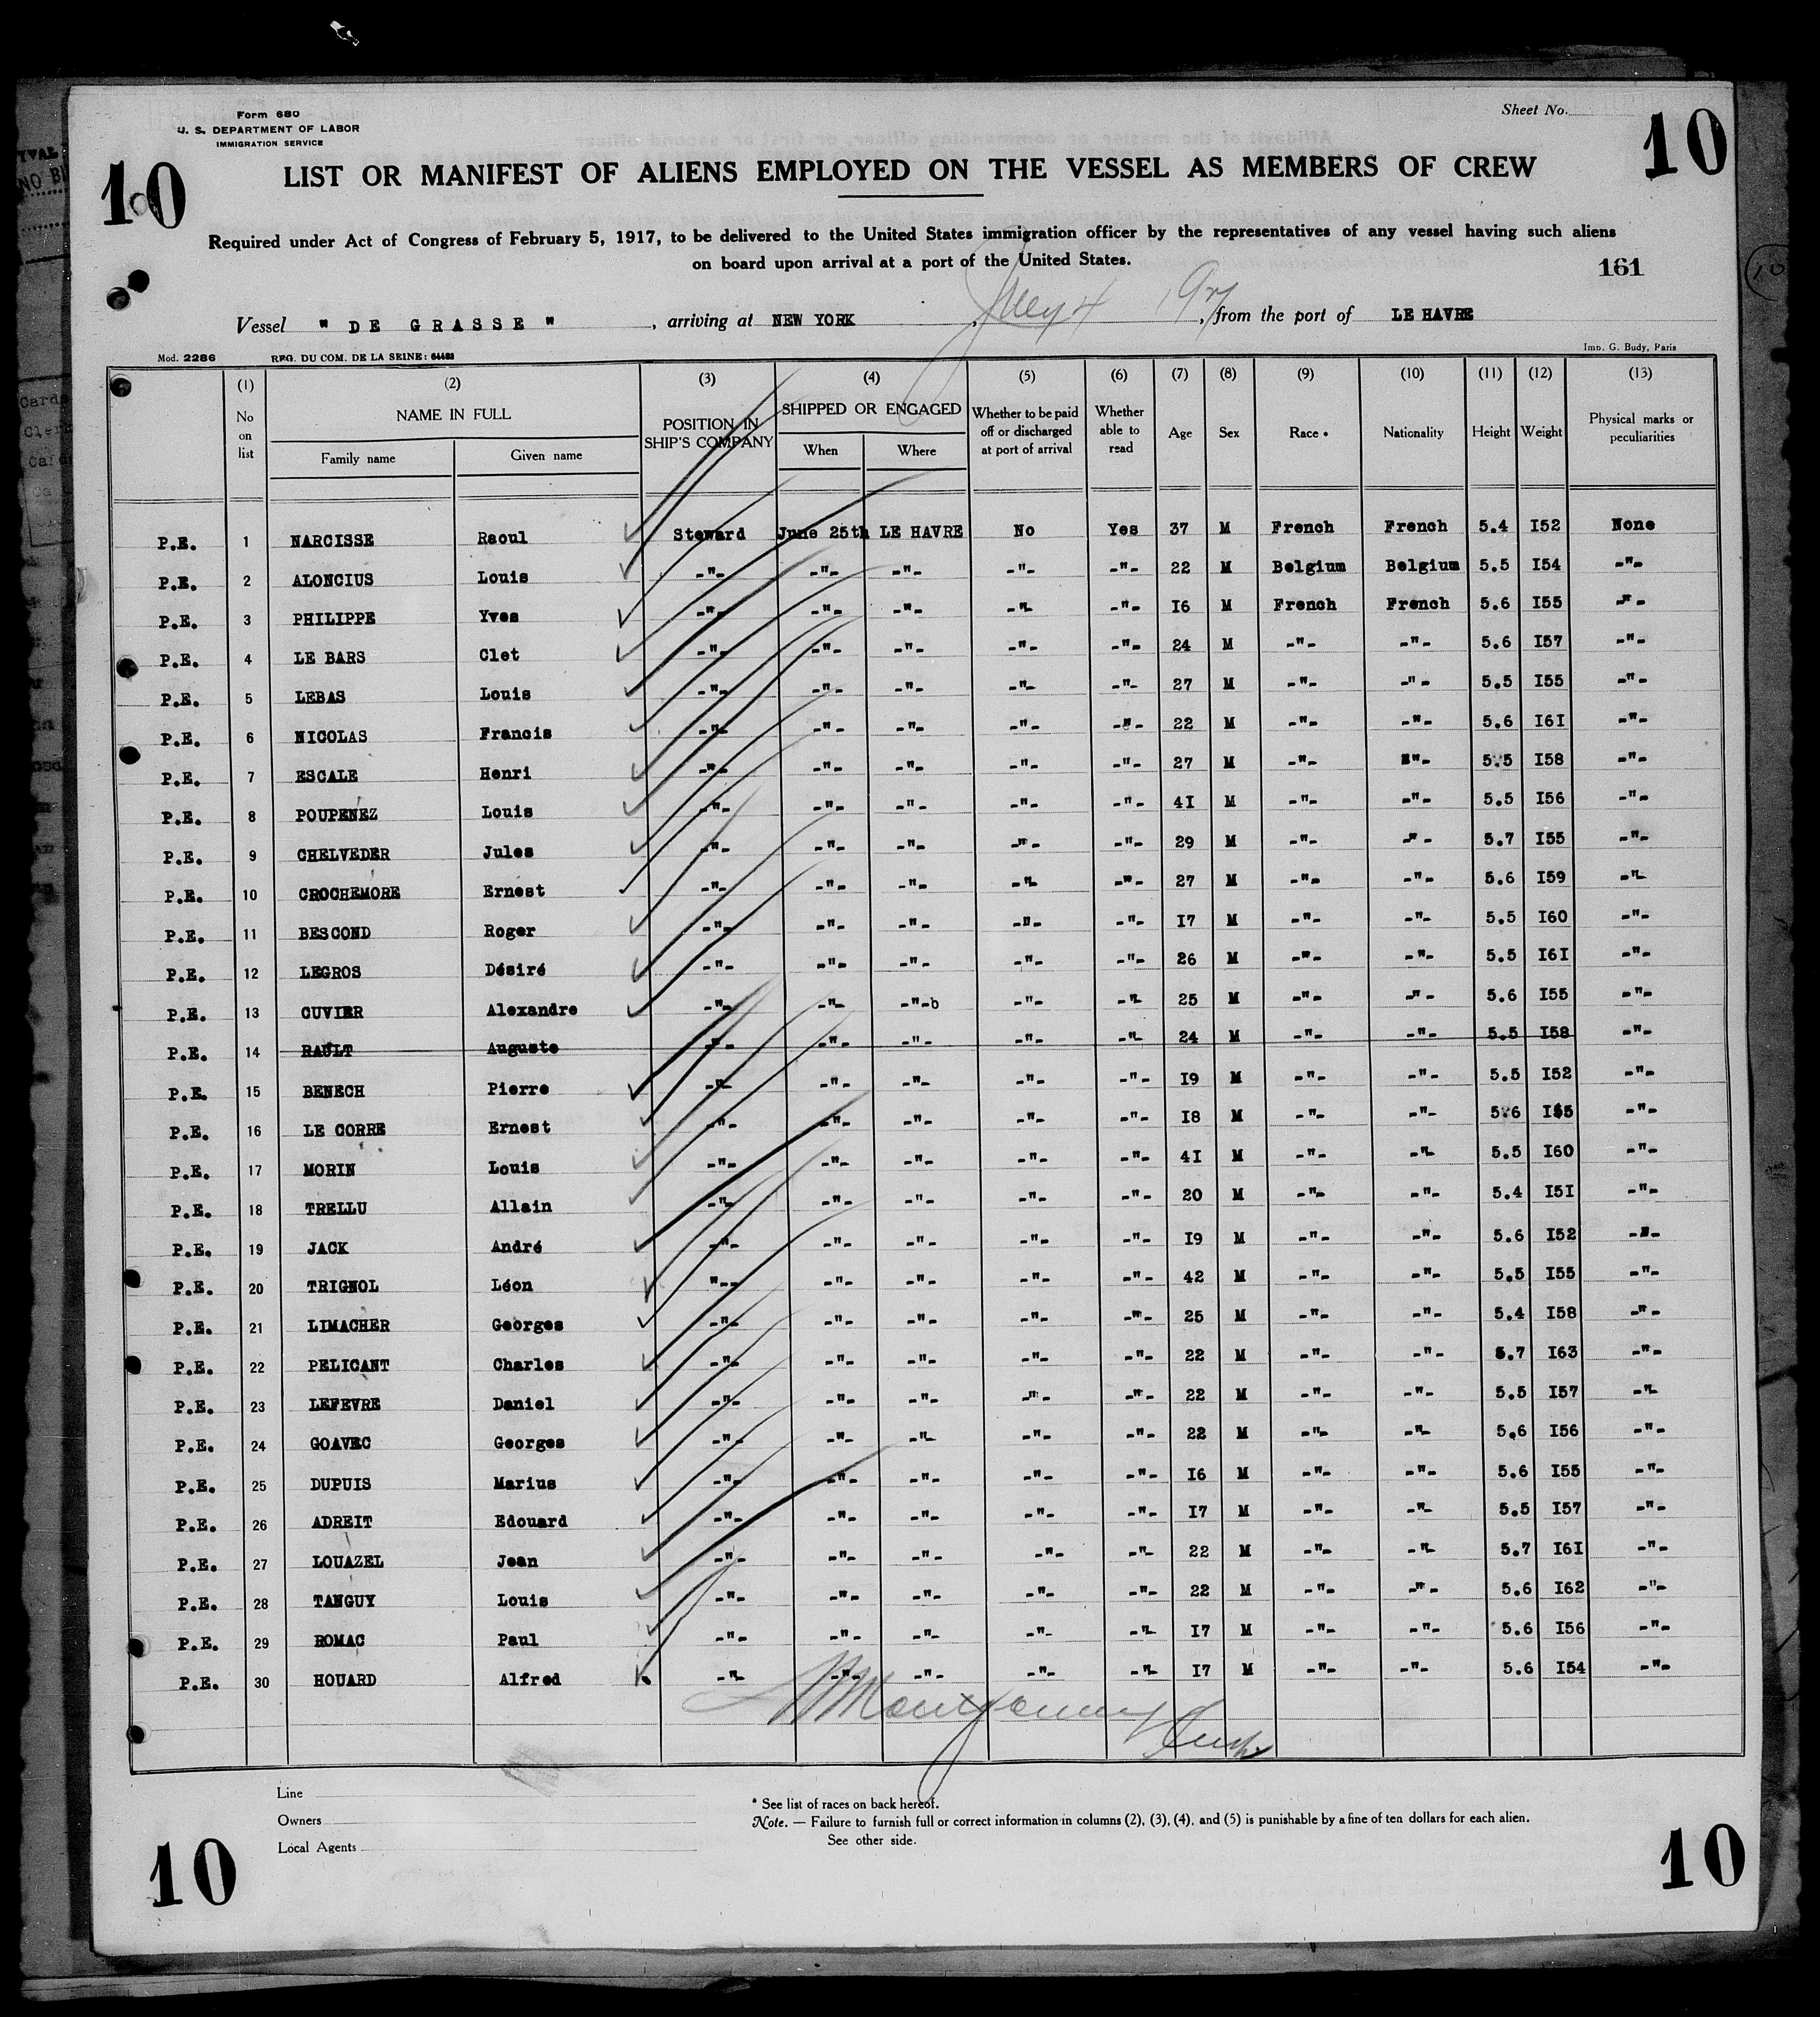 Form 680
U. S. DEPARTMENT OF LABOR
IMMIGRATION SERVICE
Sheet No.
10
10
LIST OR MANIFEST OF ALIENS EMPLOYED ON THE VESSEL AS MEMBERS OF CREW
Required under Act of Congress of February 5, 1917, to be delivered to the United States immigration officer by the representatives of any vessel having such aliens
on board upon arrival at a port of the United States.
161
Vessel " DE GRASSE " , arriving at NEW YORK , July 4 192 , from the port of LE HAVRE
Mod. 2286 REG. DU COM. DE LA SEINE: 64483 Imp. G. Budy, Paris
(1) (2) (3) (4) (5) (6) (7) (8) (9) (10) (11) (12) (13)
No on list NAME IN FULL Family name Given name POSITION IN SHIP'S COMPANY SHIPPED OR ENGAGED When Where Whether to be paid off or discharged at port of arrival Whether able to read Age Sex Race * Nationality Height Weight Physical marks or peculiarities
P.E. 1 NARCISSE Raoul Steward June 25th LE HAVRE No Yes 37 M French French 5.4 I52 None
P.E. 2 ALONCIUS Louis -"- -"- -"- -"- -"- 22 M Belgium Belgium 5.5 I54 -"-
P.E. 3 PHILIPPE Yves -"- -"- -"- -"- -"- I6 M French French 5.6 I55 -"-
P.E. 4 LE BARS Clet -"- -"- -"- -"- -"- 24 M -"- -"- 5.6 I57 -"-
P.E. 5 LEBAS Louis -"- -"- -"- -"- -"- 27 M -"- -"- 5.5 I55 -"-
P.E. 6 NICOLAS Francis -"- -"- -"- -"- -"- 22 M -"- -"- 5.6 I6I -"-
P.E. 7 ESCALE Henri -"- -"- -"- -"- -"- 27 M -"- -"- 5.5 I58 -"-
P.E. 8 POUPENEZ Louis -"- -"- -"- -"- -"- 4I M -"- -"- 5.5 I56 -"-
P.E. 9 CHELVEDER Jules -"- -"- -"- -"- -"- 29 M -"- -"- 5.7 I55 -"-
P.E. 10 CROCHEMORE Ernest -"- -"- -"- -"- -"- 27 M -"- -"- 5.6 I59 -"-
P.E. 11 BESCOND Roger -"- -"- -"- -"- -"- I7 M -"- -"- 5.5 I60 -"-
P.E. 12 LEGROS Désiré -"- -"- -"- -"- -"- 26 M -"- -"- 5.5 I6I -"-
P.E. 13 CUVIER Alexandre -"- -"- -"-b -"- -"- 25 M -"- -"- 5.6 I55 -"-
P.E. 14 RAULT Auguste -"- -"- -"- -"- -"- 24 M -"- -"- 5.5 I58 -"-
P.E. 15 BENECH Pierre -"- -"- -"- -"- -"- I9 M -"- -"- 5.5 I52 -"-
P.E. 16 LE CORRE Ernest -"- -"- -"- -"- -"- I8 M -"- -"- 5.6 I55 -"-
P.E. 17 MORIN Louis -"- -"- -"- -"- -"- 4I M -"- -"- 5.5 I60 -"-
P.E. 18 TRELLU Allain -"- -"- -"- -"- -"- 20 M -"- -"- 5.4 I5I -"-
P.E. 19 JACK André -"- -"- -"- -"- -"- I9 M -"- -"- 5.6 I52 -"-
P.E. 20 TRIGNOL Léon "-- -"- -"- -"- -"- 42 M -"- -"- 5.5 I55 -"-
P.E. 21 LIMACHER Georges -"- -"- -"- -"- -"- 25 M -"- -"- 5.4 I58 -"-
P.E. 22 PELICANT Charles -"- -"- -"- -"- -"- 22 M -"- -"- 5.7 I63 -"-
P.E. 23 LEFEVRE Daniel -"- -"- -"- -"- -"- 22 M -"- -"- 5.5 I57 -"-
P.E. 24 GOAVEC Georges -"- -"- -"- -"- -"- 22 M -"- -"- 5.6 I56 -"-
P.E. 25 DUPUIS Marius -"- -"- -"- -"- -"- I6 M -"- -"- 5.6 I55 -"-
P.E. 26 ADREIT Edouard -"- -"- -"- -"- -"- I7 M -"- -"- 5.5 I57 -"-
P.E. 27 LOUAZEL Jean -"- -"- -"- -"- -"- 22 M -"- -"- 5.7 I6I -"-
P.E. 28 TANGUY Louis -"- -"- -"- -"- -"- 22 M -"- -"- 5.6 I62 -"-
P.E. 29 ROMAC Paul -"- -"- -"- -"- -"- I7 M -"- -"- 5.6 I56 -"-
P.E. 30 HOUARD Alfred -"- -"- -"- -"- -"- I7 M -"- -"- 5.6 I54 -"-
Line
Owners
Local Agents
* See list of races on back hereof.
Note. — Failure to furnish full or correct information in columns (2), (3), (4), and (5) is punishable by a fine of ten dollars for each alien.
See other side.
10
10